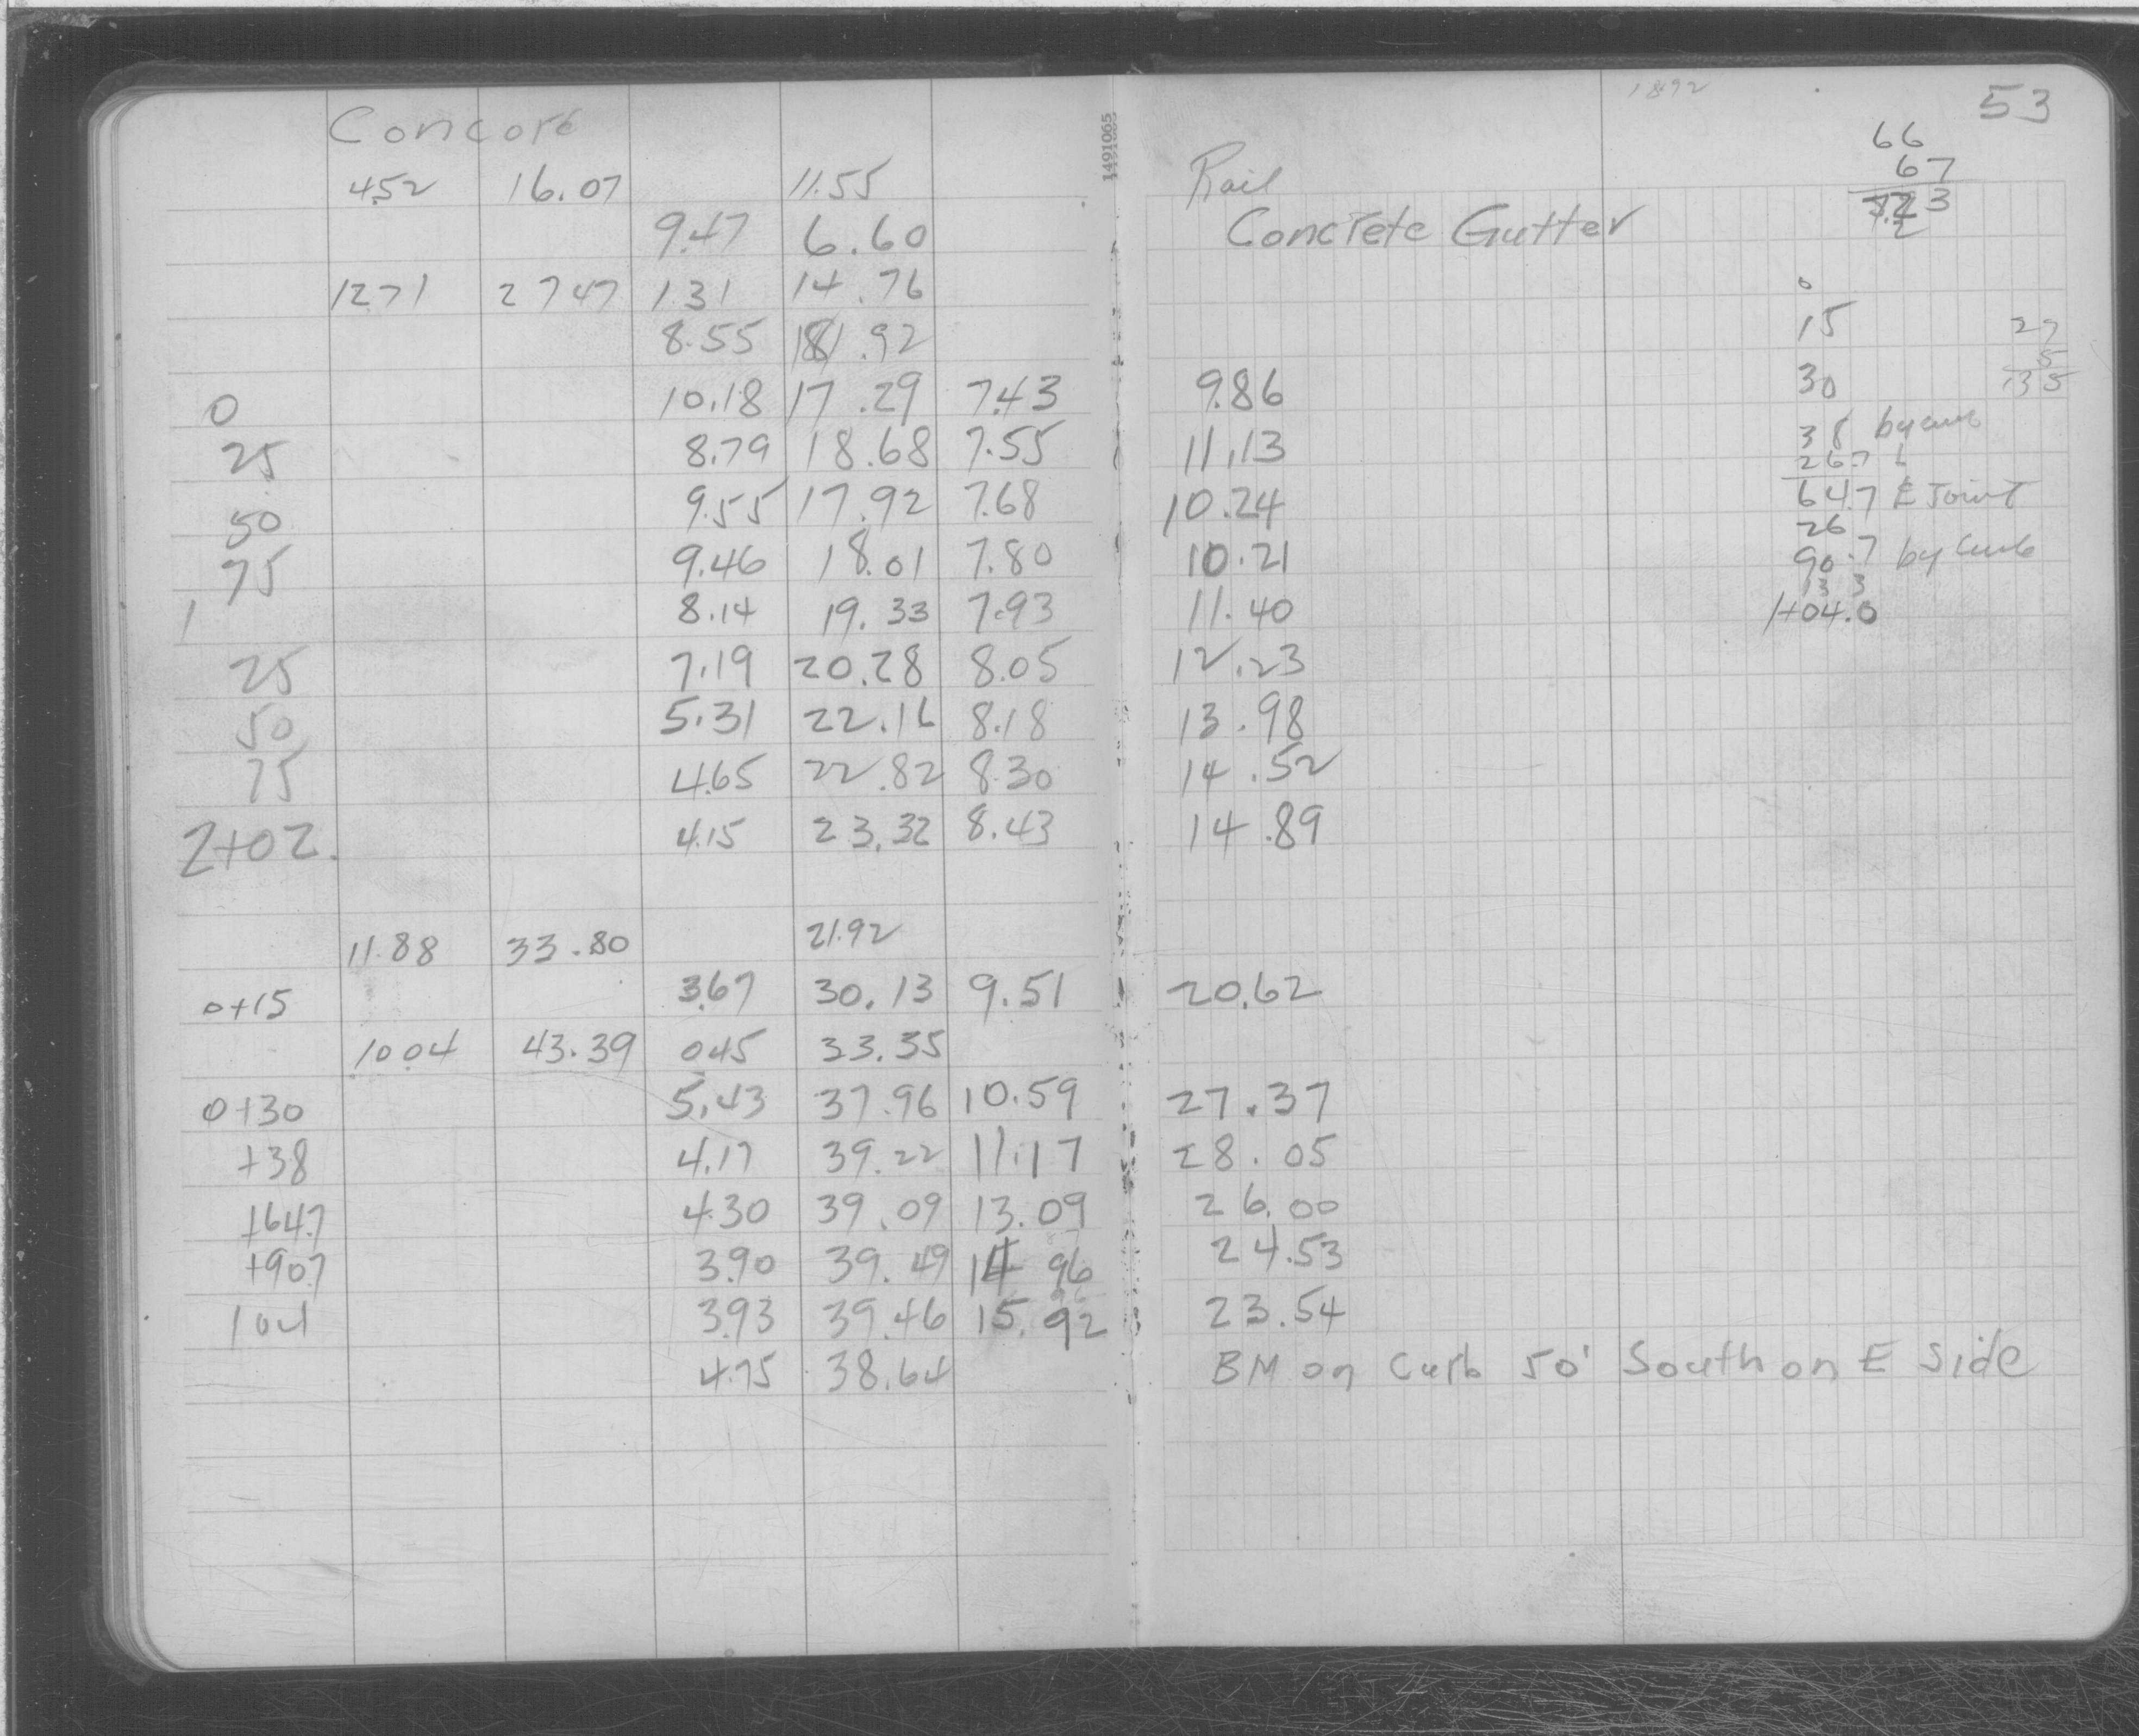 Concord
4.52 16.07 11.55 Rail
9.47 6.60 Concrete Gutter
12.71 27.47 1.31 14.76
8.55 18.92
0 10.18 17.29 7.43 9.86
25 8.79 18.68 7.55 11.13
50 9.55 17.92 7.68 10.24
75 9.46 18.01 7.80 10.21
1 8.14 19.33 7.93 11.40
25 7.19 20.28 8.05 12.23
50 5.31 22.16 8.18 13.98
75 4.65 22.82 8.30 14.52
2+02. 4.15 23.32 8.43 14.89
11.88 33.80 21.92
0+15 3.67 30.13 9.51 20.62
10.04 43.39 0.45 33.35
0+30 5.43 37.96 10.59 27.37
+38 4.17 39.22 11.17 28.05
+64.7 4.30 39.09 13.09 26.00
+90.7 3.90 39.49 14.96 24.53
104 3.93 39.46 15.92 23.54
4.75 38.64 BM on Curb 50' South on E Side
1491065
1892
53
66
67
0
15
30
38 by curb
26.7
64.7 E Joint
26
90.7 by Curb
13 3
1+04.0
27
5
135